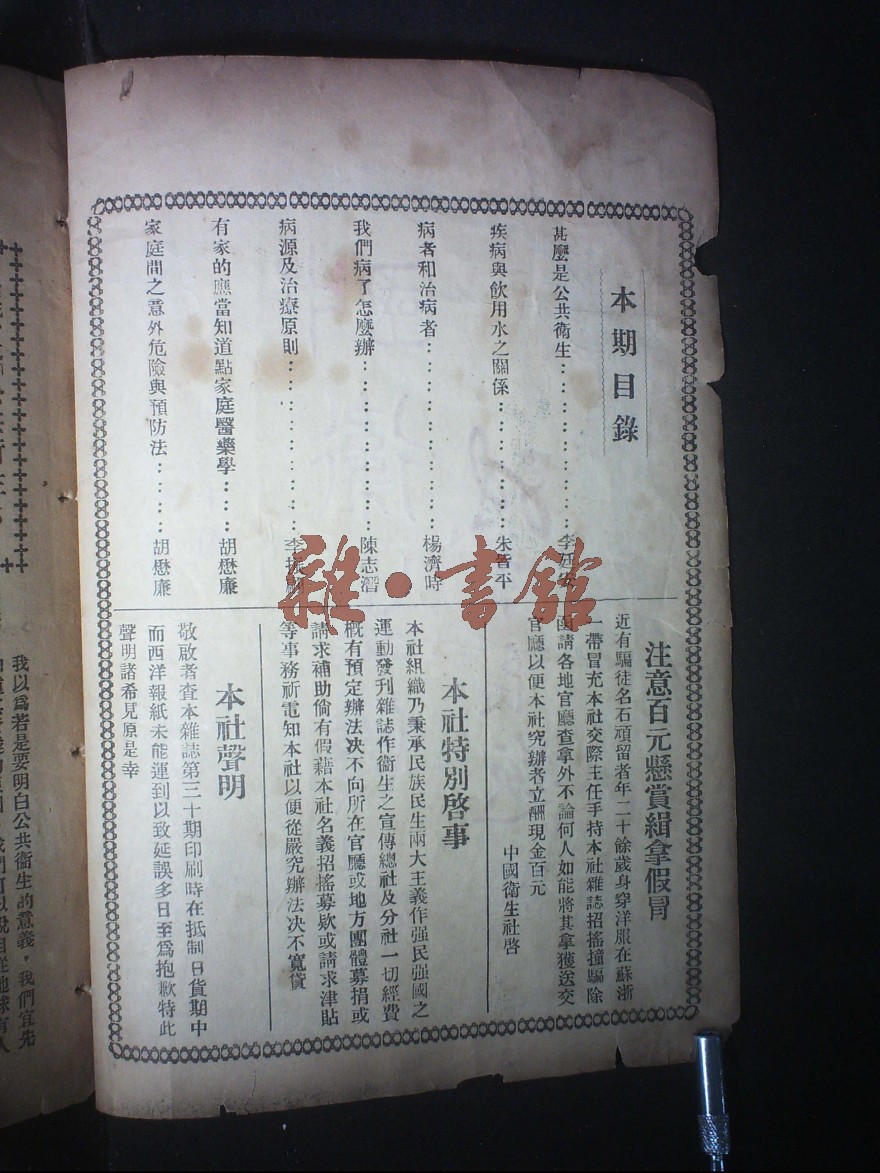 本期目錄
甚麼是公共衛生
疾病與飲用水之關係……朱
病者和治病者……楊濟時
我們病了怎麼辦……陳志潛
病源及治療原則……李
有家的應當知道點家庭醫藥學……胡懋廉
家庭間之意外危險與預防法……胡懋廉
注意百元懸賞緝拿假冒
近有騙徒名石頑留者年二十餘歲身穿洋服在蘇浙
一帶冒充本社交際主任手持本社雜誌招搖撞騙除
函請各地官廳查拿外不論何人如能將其拿獲送交
官廳以便本社究辦者立酬現金百元
中國衛生社啓
本社特別啓事
本社組織乃秉承民族民生兩大主義作强民强國之
運動發刊雜誌作衞生之宣傳總社及分社一切經費
概有預定辦法决不向所在官廳或地方團體募捐或
請求補助倘有假藉本社名義招搖募欵或請求津貼
等事務祈電知本社以便從嚴究辦法决不寬貸
本社聲明
敬啟者查本雜誌第三十期印刷時在抵制日貨期中
而西洋報紙未能運到以致延誤多日至爲抱歉特此
聲明諸希見原是幸
雜·書館
我以爲若是要明白公共衞生的意義，我們宜先